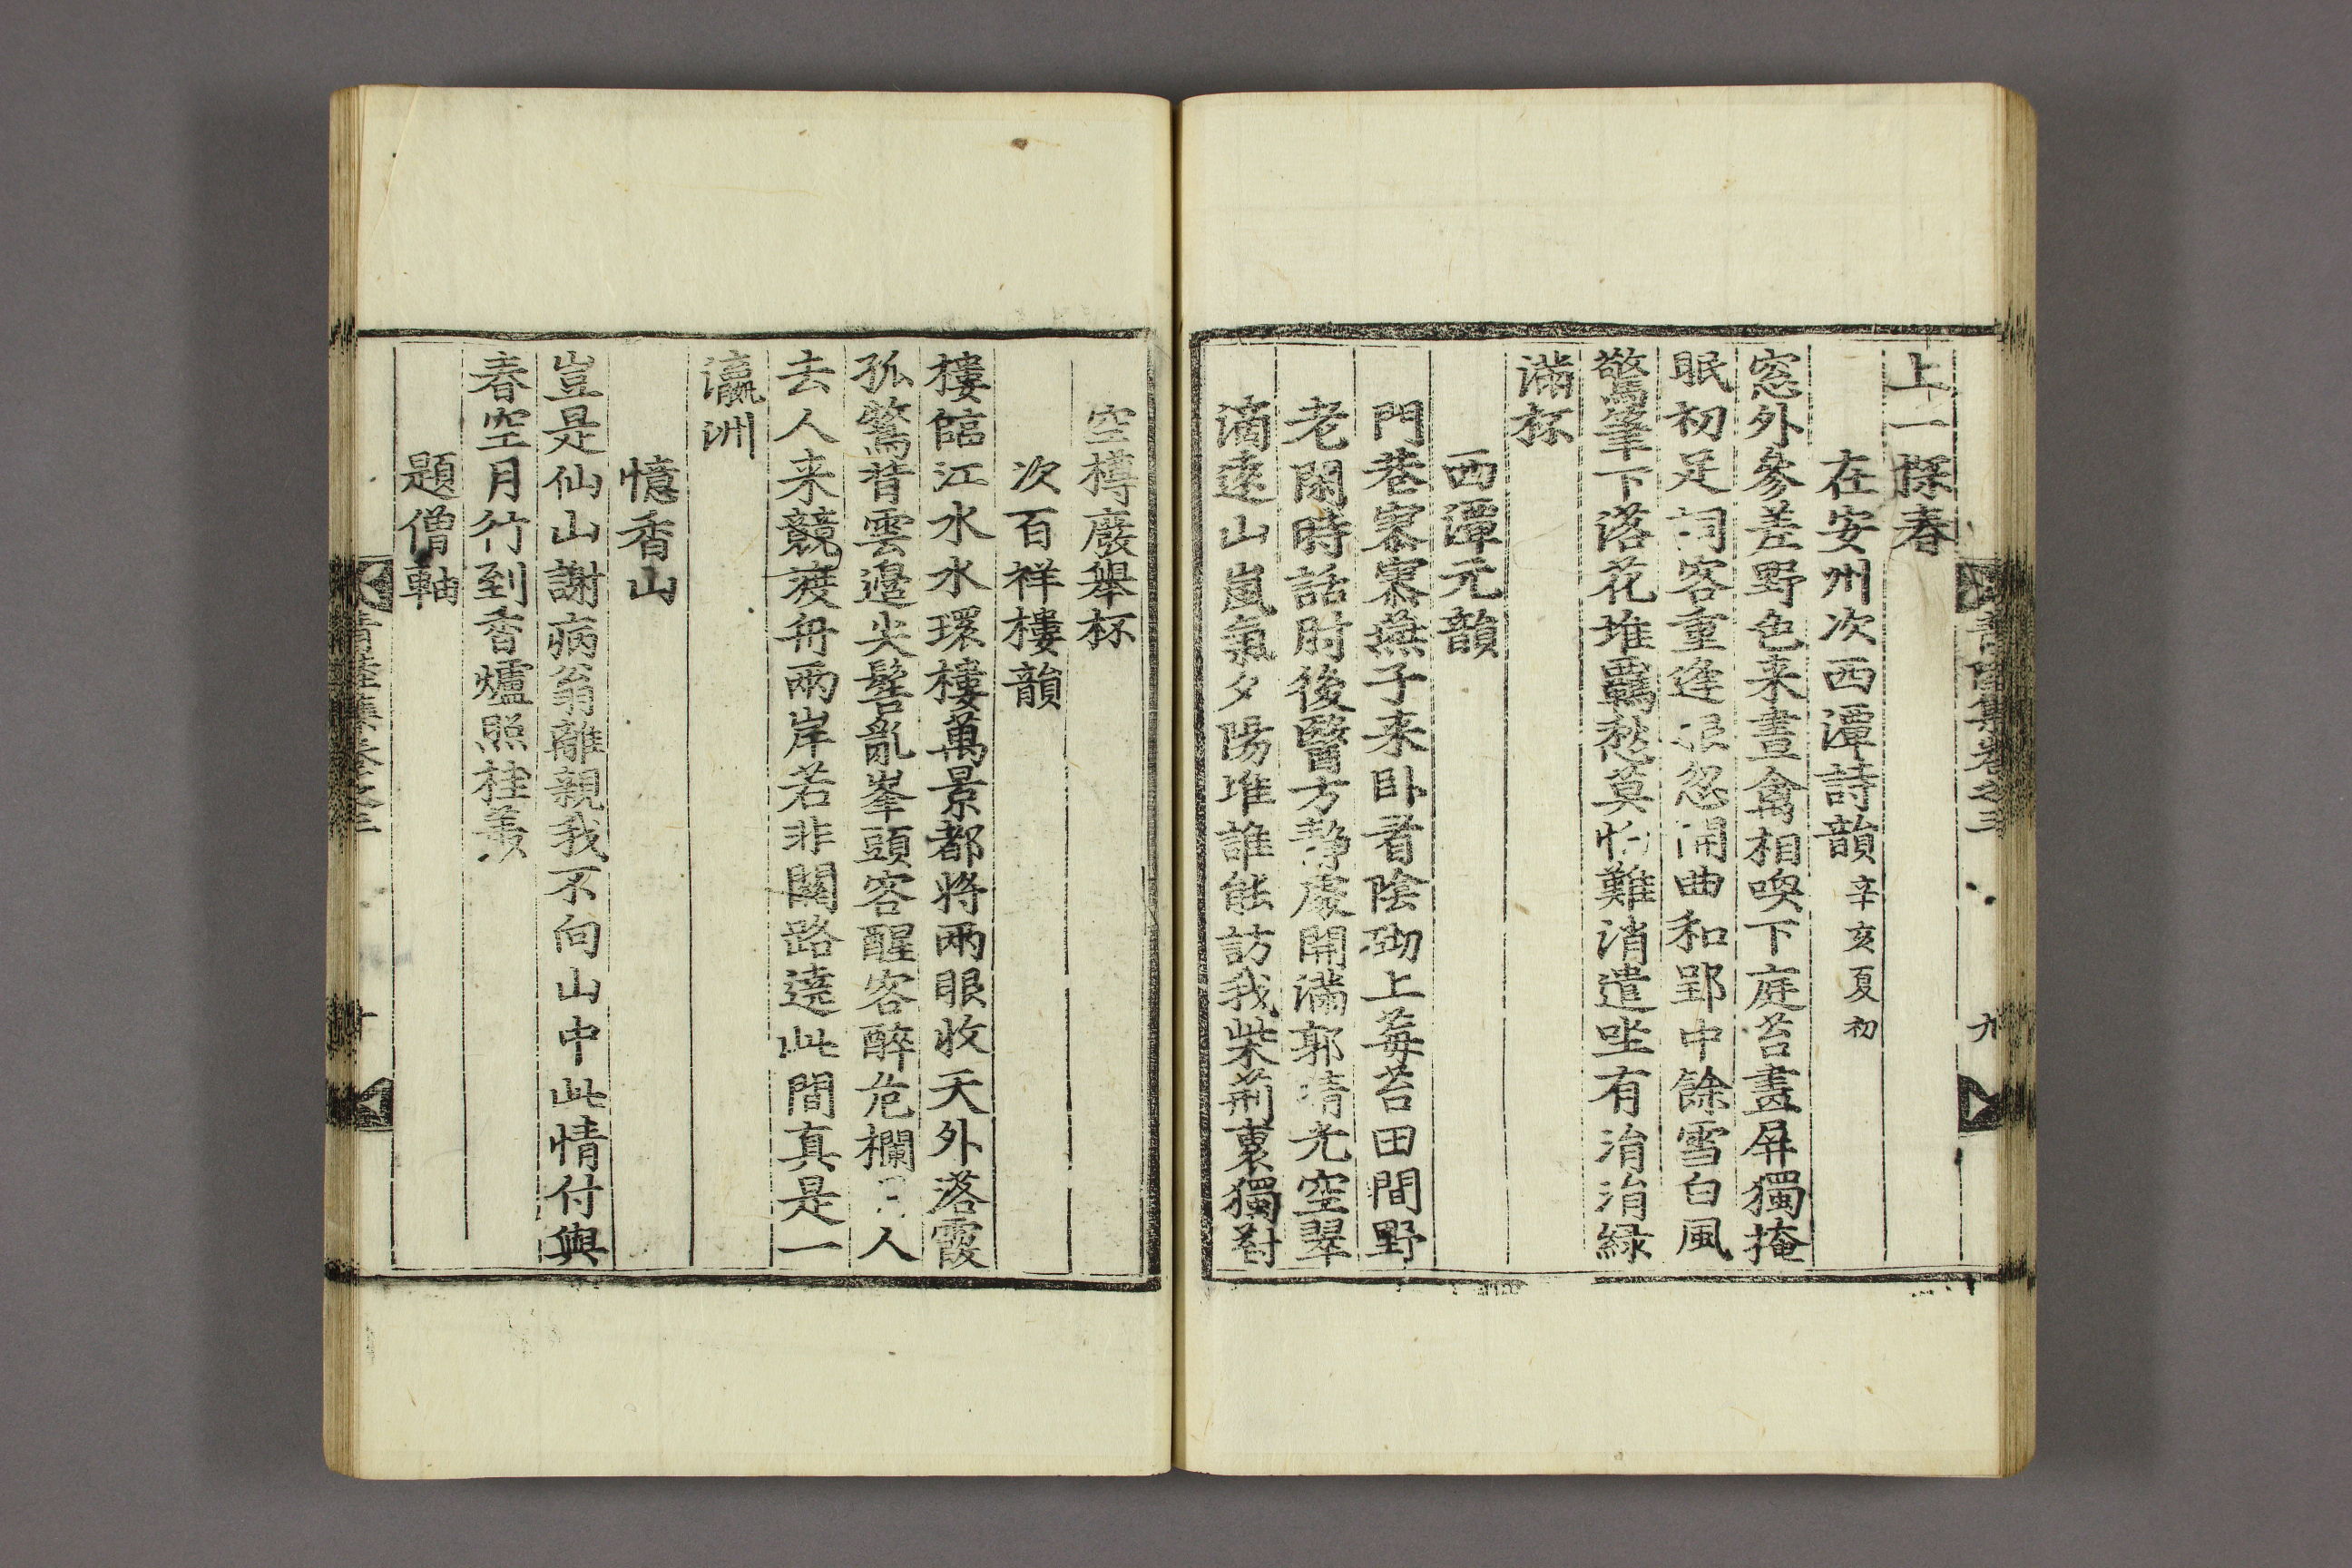 上一探春
在安州次西潭詩韻辛亥夏初
窓外參差野色来晝禽相喚下庭苔畫屏獨掩
眠初足詞客重逢 忽開曲和郢中餘雪白風
驚筆下落花堆羈愁莫 難消遣坐有涓涓綠
滿杯
西潭元韻
門巷寥寥撫子来卧看陰砌上莓苔田間野
老閑時話肘後醫方靜處開滿郭晴光空翠
滴遠山嵐氣夕陽堆誰能訪我柴荊裏獨對
空樽廢舉杯
次百祥樓韻
樓臨江水水環樓萬景都將兩眼收天外落霞
孤鶩背雲邊尖髻亂峯頭客醒客醉危欄 人
去人来競渡舟兩岸若非關路遶此間真是一
瀛洲
憶香山
豈是仙山謝病翁離親我不向山中此情付與
春空月行到香爐照桂叢
題僧軸
集卷之三 九
青陸集卷之三 十